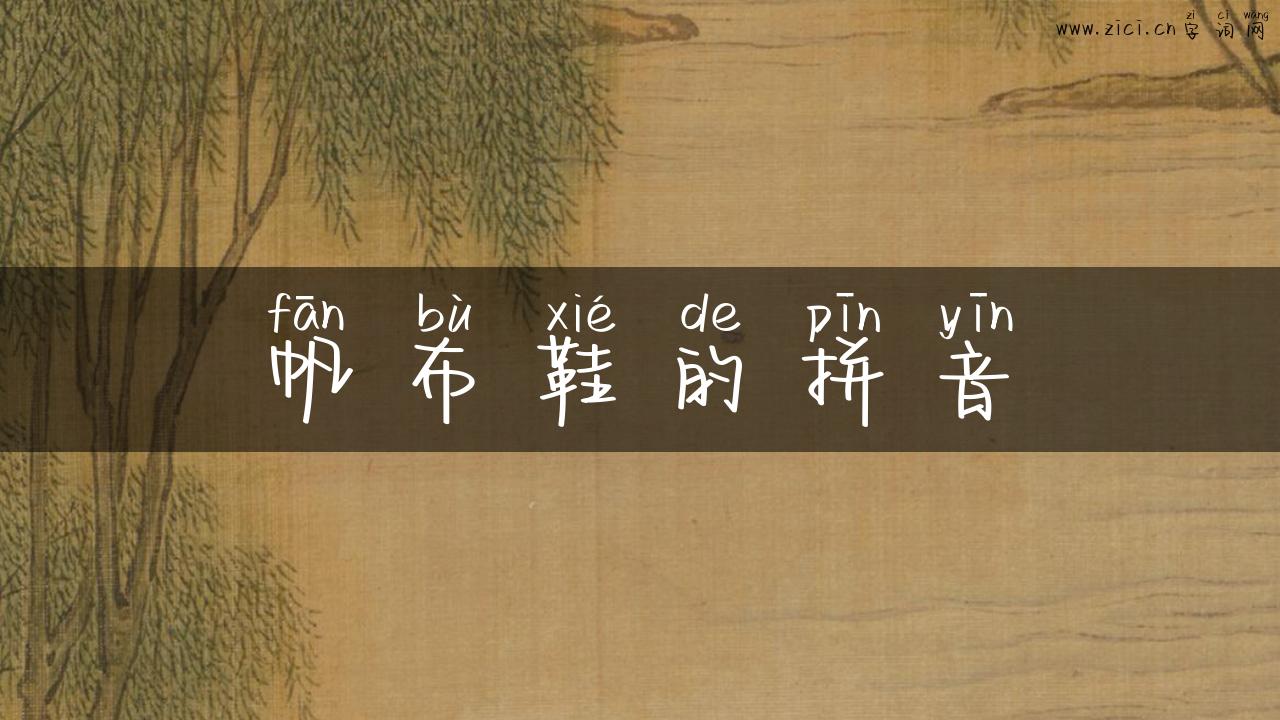 zì cí wǎng
www.zici.cn 字词网
fān bù xié de pīn yīn
帆布鞋的拼音